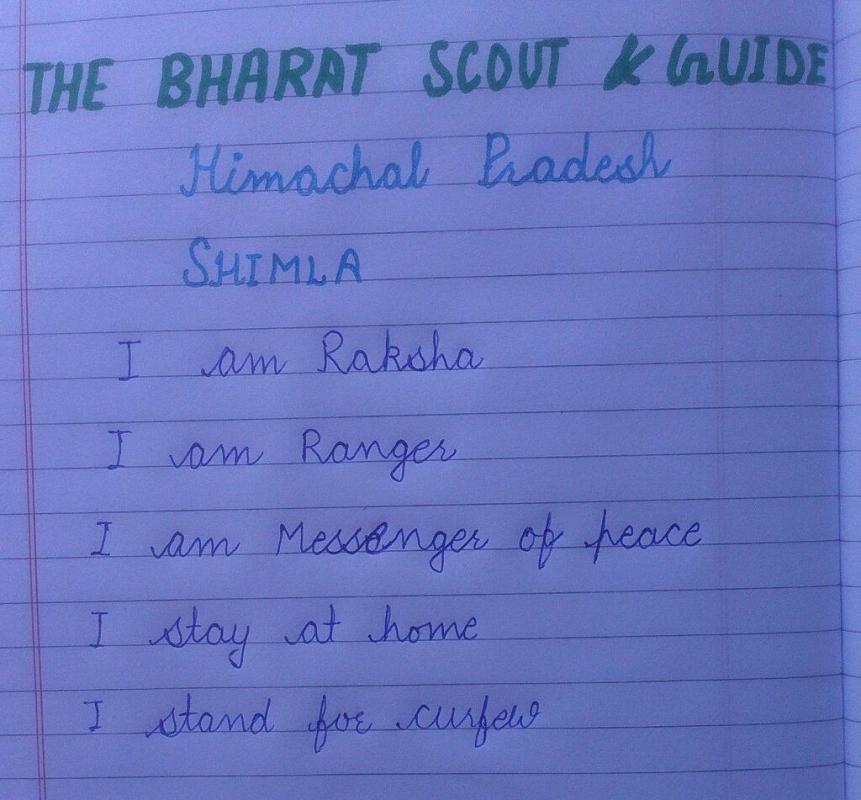 THE BHARAT SCOUT & GUIDE
Himachal Pradesh
SHIMLA
I am Raksha
I am Ranger
I am Messenger of peace
I stay at home
I stand for curfew